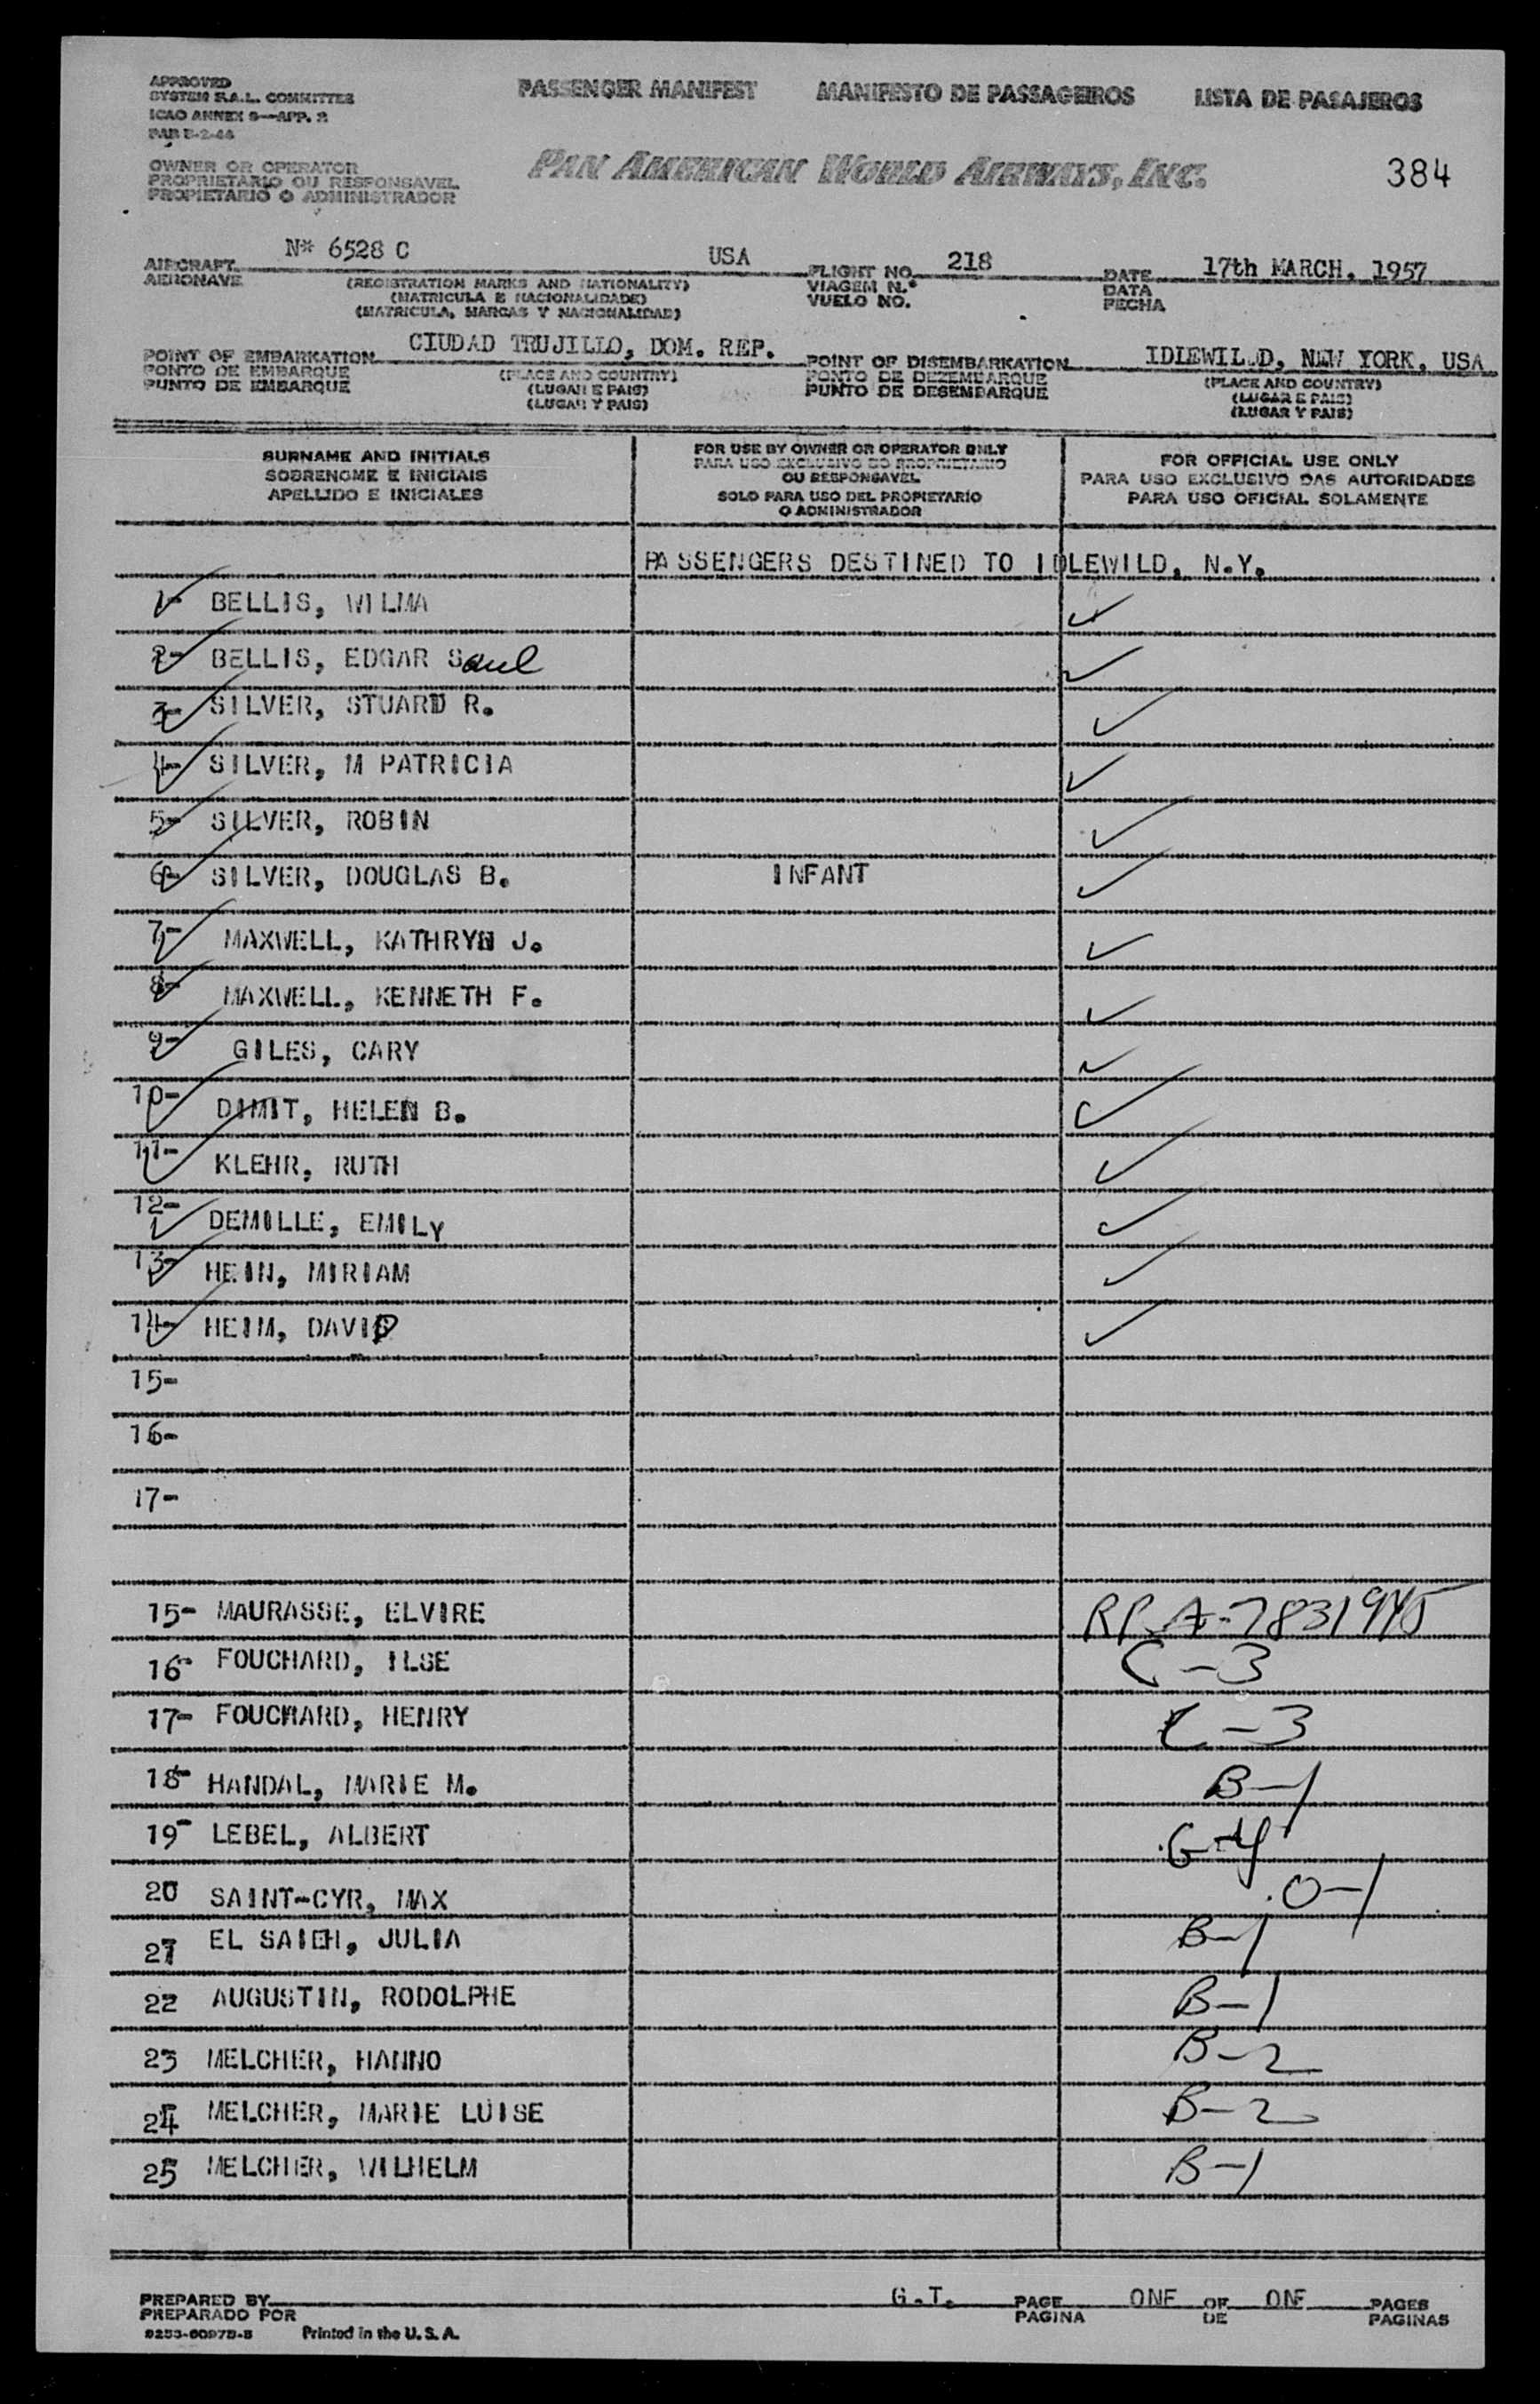 APPROVED
SYSTEM F.A.L. COMMITTEE
ICAO ANNEX 9—APP. 2
PAR 5-2-44
PASSENGER MANIFEST MANIFESTO DE PASSAGEIROS LISTA DE PASAJEROS
OWNER OR OPERATOR
PROPRIETARIO OU RESPONSAVEL
PROPIETARIO O ADMINISTRADOR
PAN AMERICAN WORLD AIRWAYS, INC.
384
AIRCRAFT N* 6528 C USA FLIGHT NO. 218 DATE 17th MARCH, 1957
AERONAVE (REGISTRATION MARKS AND NATIONALITY) VIAGEM N.º DATA
(MATRICULA E NACIONALIDADE) VUELO NO. FECHA
(MATRICULA, MARCAS Y NACIONALIDAD)
POINT OF EMBARKATION CIUDAD TRUJILLO, DOM. REP. POINT OF DISEMBARKATION IDLEWILD, NEW YORK, USA
PONTO DE EMBARQUE (PLACE AND COUNTRY) PONTO DE DEZEMBARQUE (PLACE AND COUNTRY)
PUNTO DE EMBARQUE (LUGAR E PAIS) PUNTO DE DESEMBARQUE (LUGAR E PAIS)
(LUGAR Y PAIS) (LUGAR Y PAIS)
SURNAME AND INITIALS
SOBRENOME E INICIAIS
APELLIDO E INICIALES
FOR USE BY OWNER OR OPERATOR ONLY
PARA USO EXCLUSIVO DO PROPRIETARIO
OU RESPONSAVEL
SOLO PARA USO DEL PROPIETARIO
O ADMINISTRADOR
FOR OFFICIAL USE ONLY
PARA USO EXCLUSIVO DAS AUTORIDADES
PARA USO OFICIAL SOLAMENTE
PASSENGERS DESTINED TO IDLEWILD, N.Y.
1- BELLIS, WILMA ✓
2- BELLIS, EDGAR Saul ✓
3- SILVER, STUARD R. ✓
4- SILVER, M PATRICIA ✓
5- SILVER, ROBIN ✓
6- SILVER, DOUGLAS B. INFANT ✓
7- MAXWELL, KATHRYN J. ✓
8- MAXWELL, KENNETH F. ✓
9- GILES, CARY ✓
10- DIMIT, HELEN B. ✓
11- KLEHR, RUTH ✓
12- DEMILLE, EMILY ✓
13- HEIN, MIRIAM ✓
14- HEIM, DAVID ✓
15-
16-
17-
15- MAURASSE, ELVIRE RP A-7831945
16- FOUCHARD, ILSE C-3
17- FOUCHARD, HENRY C-3
18- HANDAL, MARIE M. B-1
19- LEBEL, ALBERT G-4
20 SAINT-CYR, MAX O-1
21 EL SAIEH, JULIA B-1
22 AUGUSTIN, RODOLPHE B-1
23 MELCHER, HANNO B-2
24 MELCHER, MARIE LUISE B-2
25 MELCHER, WILHELM B-1
PREPARED BY G.T. PAGE ONE OF ONE PAGES
PREPARADO POR PAGINA DE PAGINAS
Printed in the U. S. A.